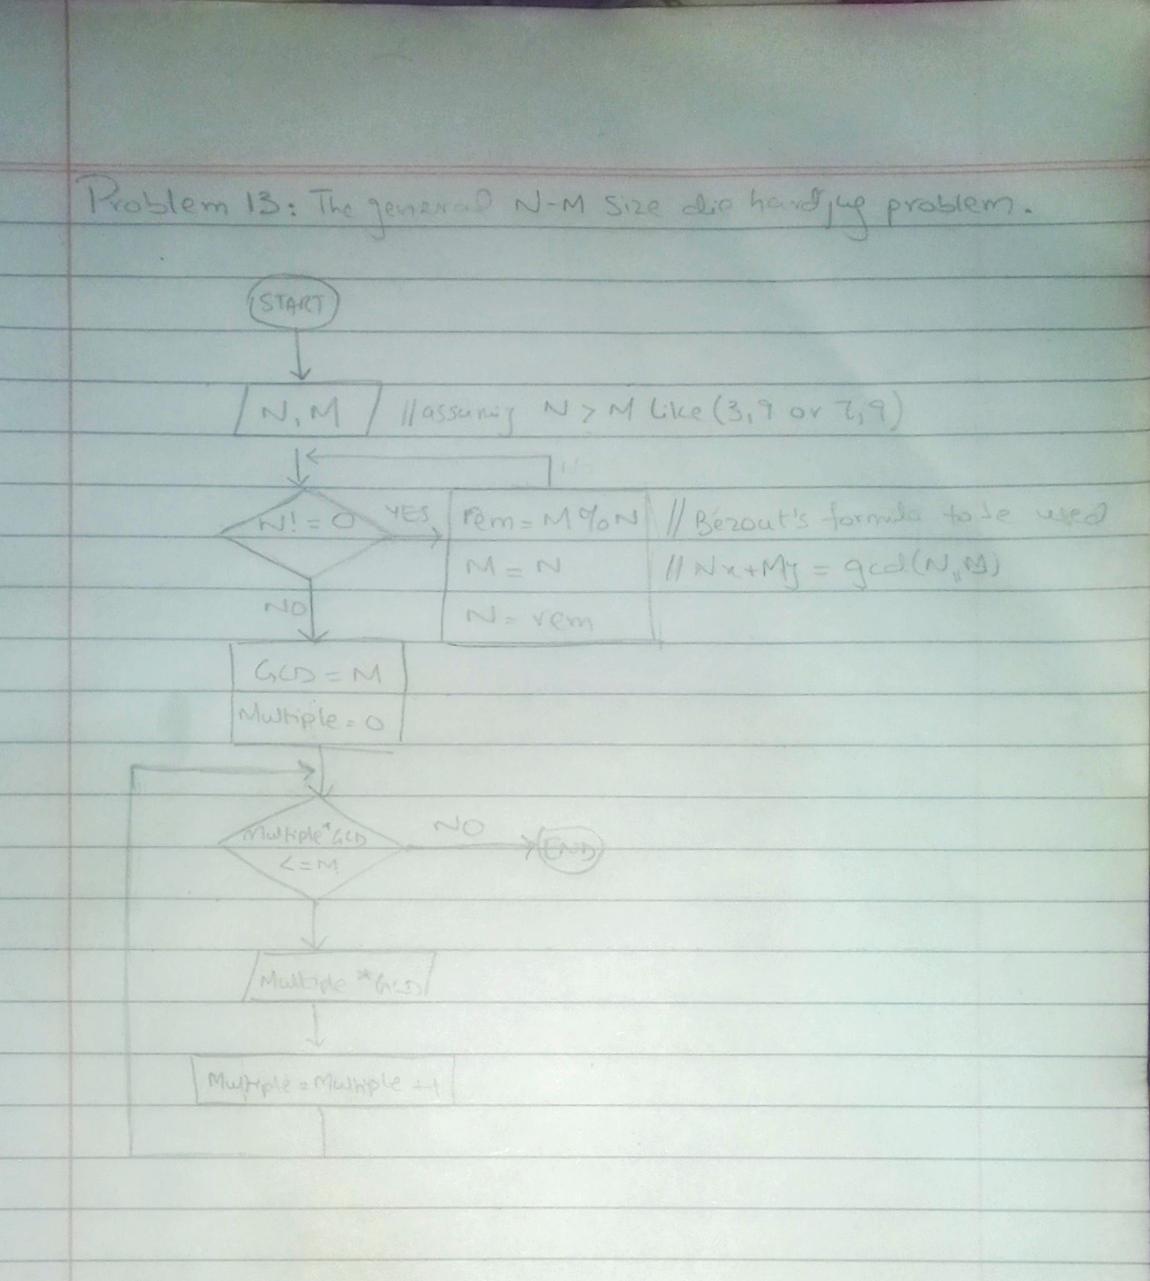 Problem 13: The general N-M size die hard jug problem.
START
N, M //assuming N > M like (3,9 or 7,9)
N! = 0 YES rem = M%N // Bézout's formula to be used
M = N // Nx+My = gcd(N,M)
NO N = rem
GCD = M
Multiple = 0
Multiple*GCD NO END
<=M
Multiple *GCD
Multiple = Multiple +1